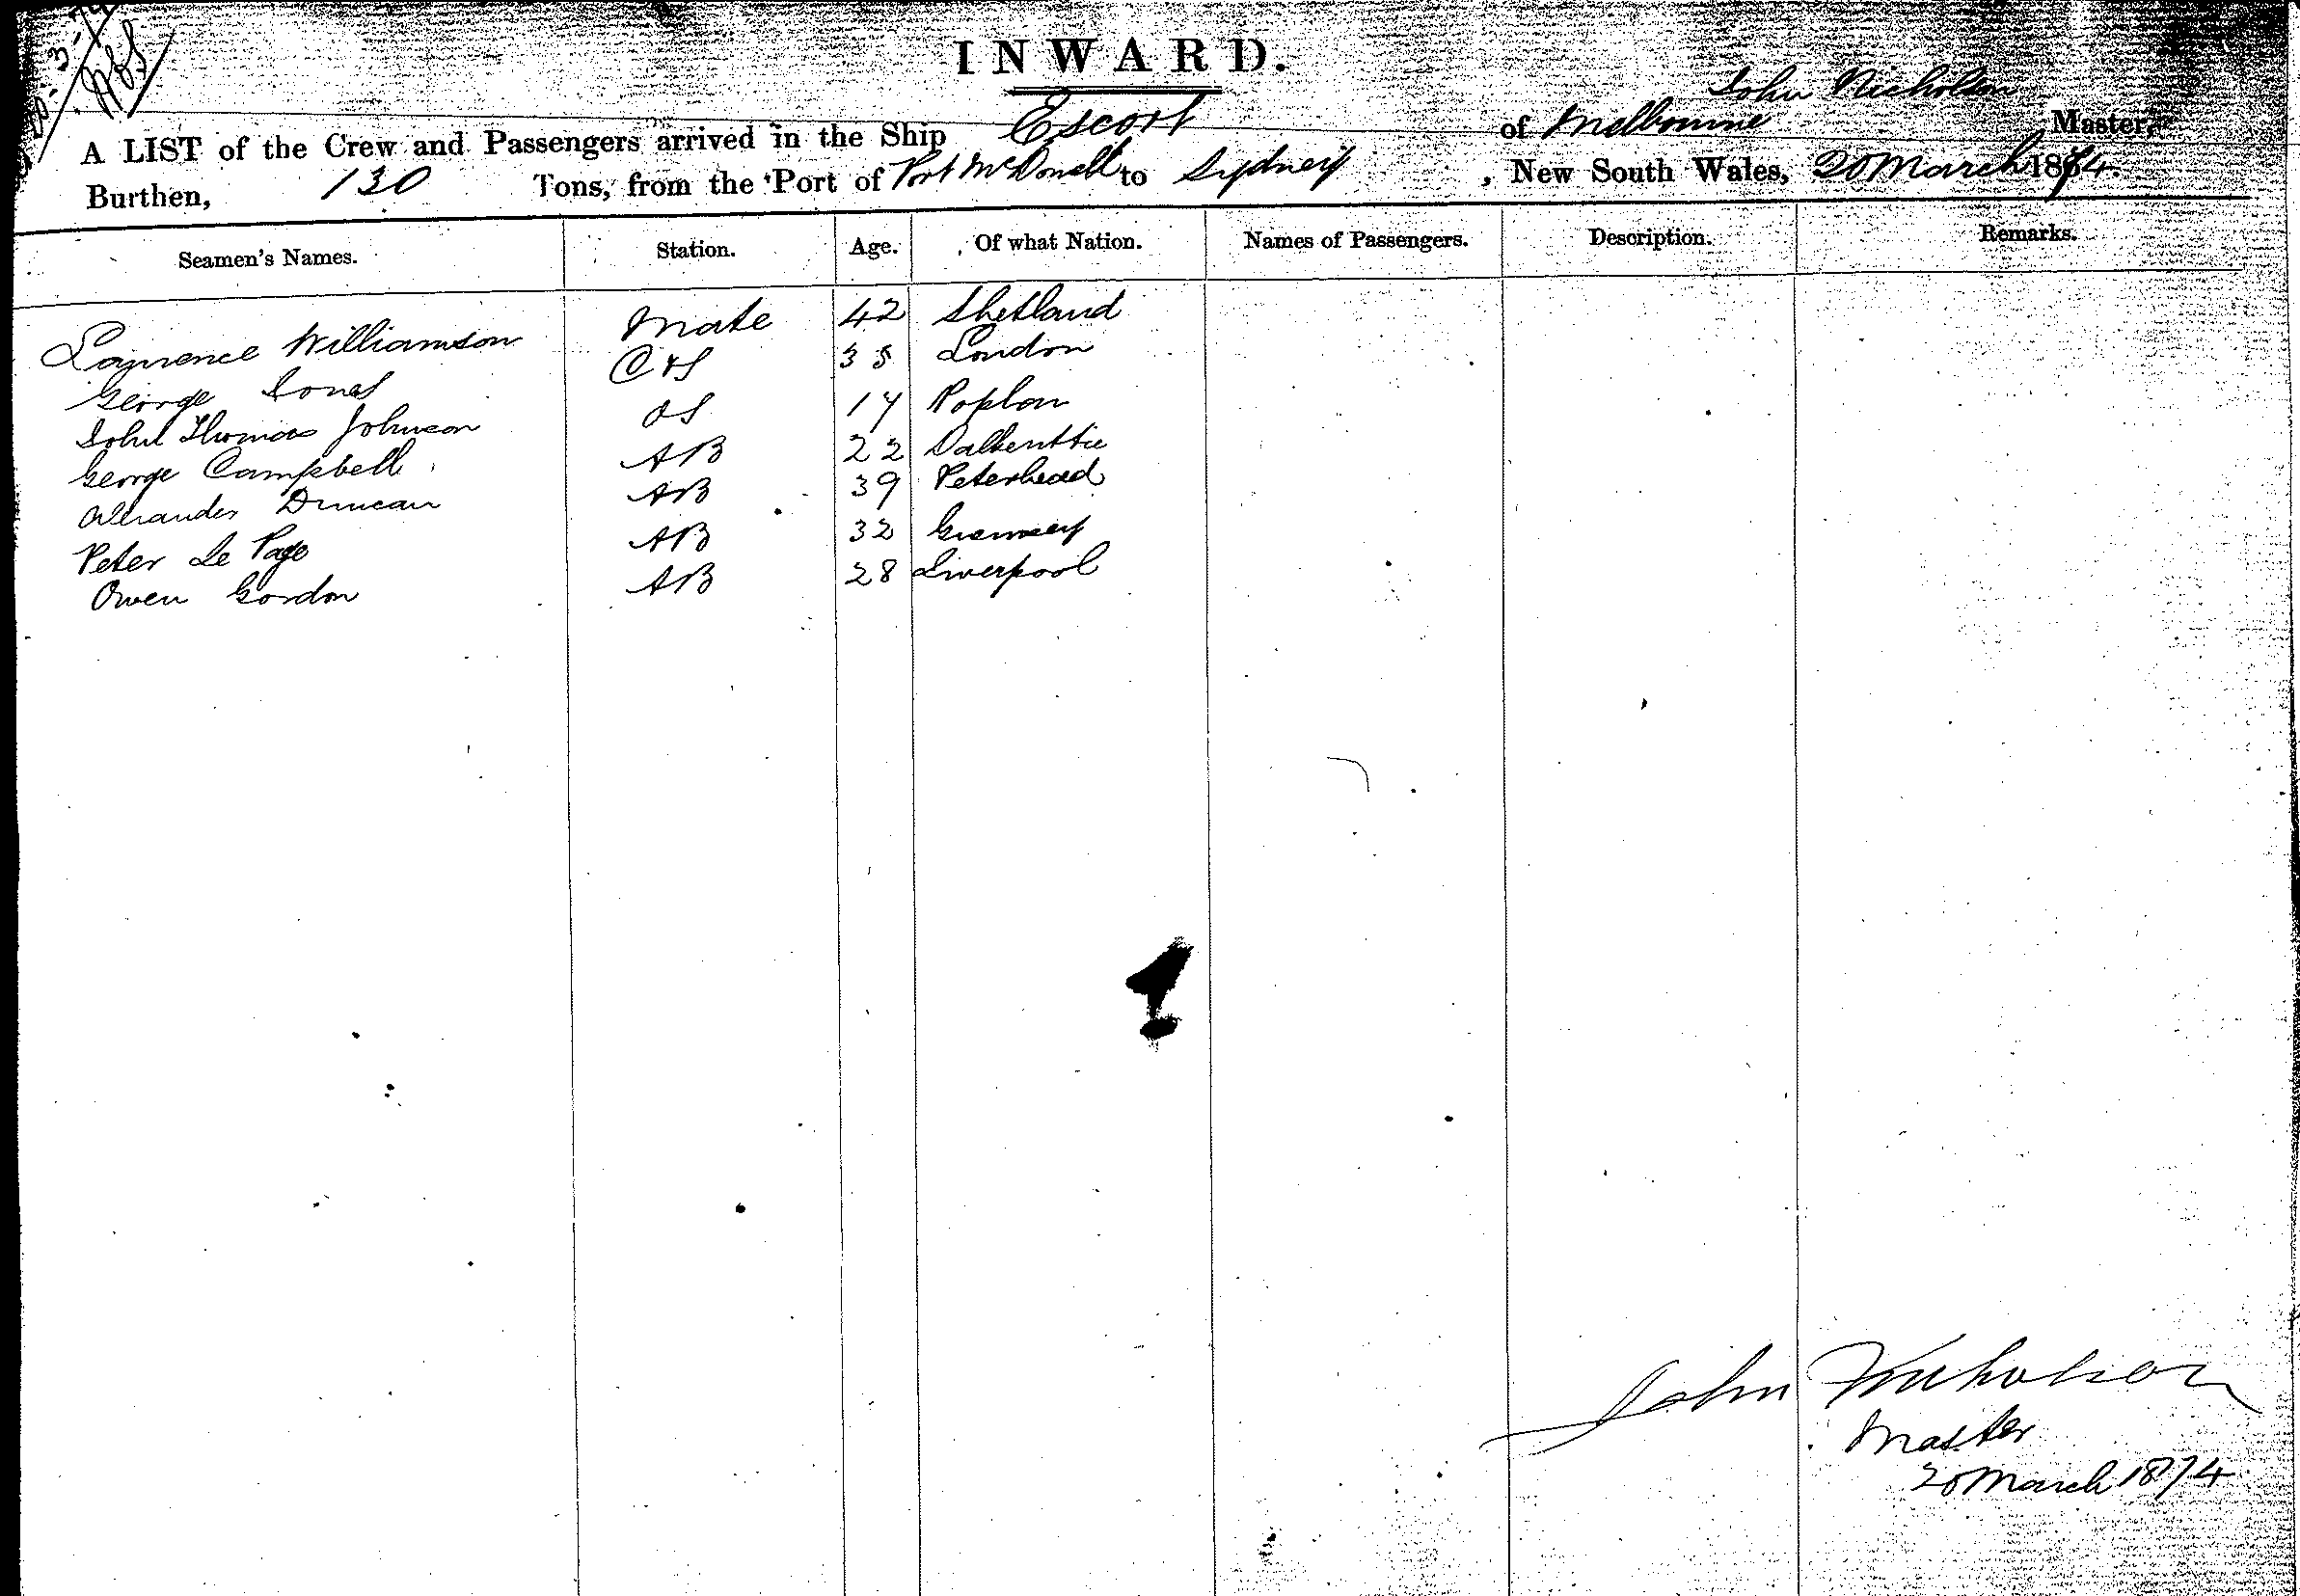 20-3-74
INWARD.
John Nicholson
A LIST of the Crew and Passengers arrived in the Ship Escort of Melbourne Master,
Burthen, 130 Tons, from the Port of Port McDonell to Sydney, New South Wales, 20 March 1874.
Seamen's Names. Station. Age. Of what Nation. Names of Passengers. Description. Remarks.
Laurence Williamson Mate 42 Shetland
George Jones C & S 35 London
John Thomas Johnson OS 17 Poplar
George Campbell AB 22 
Alexander Duncan AB 39 Peterhead
Peter Le Page AB 32 Guernsey
Owen Gordon AB 28 Liverpool
John Nicholson
Master
20 March 1874